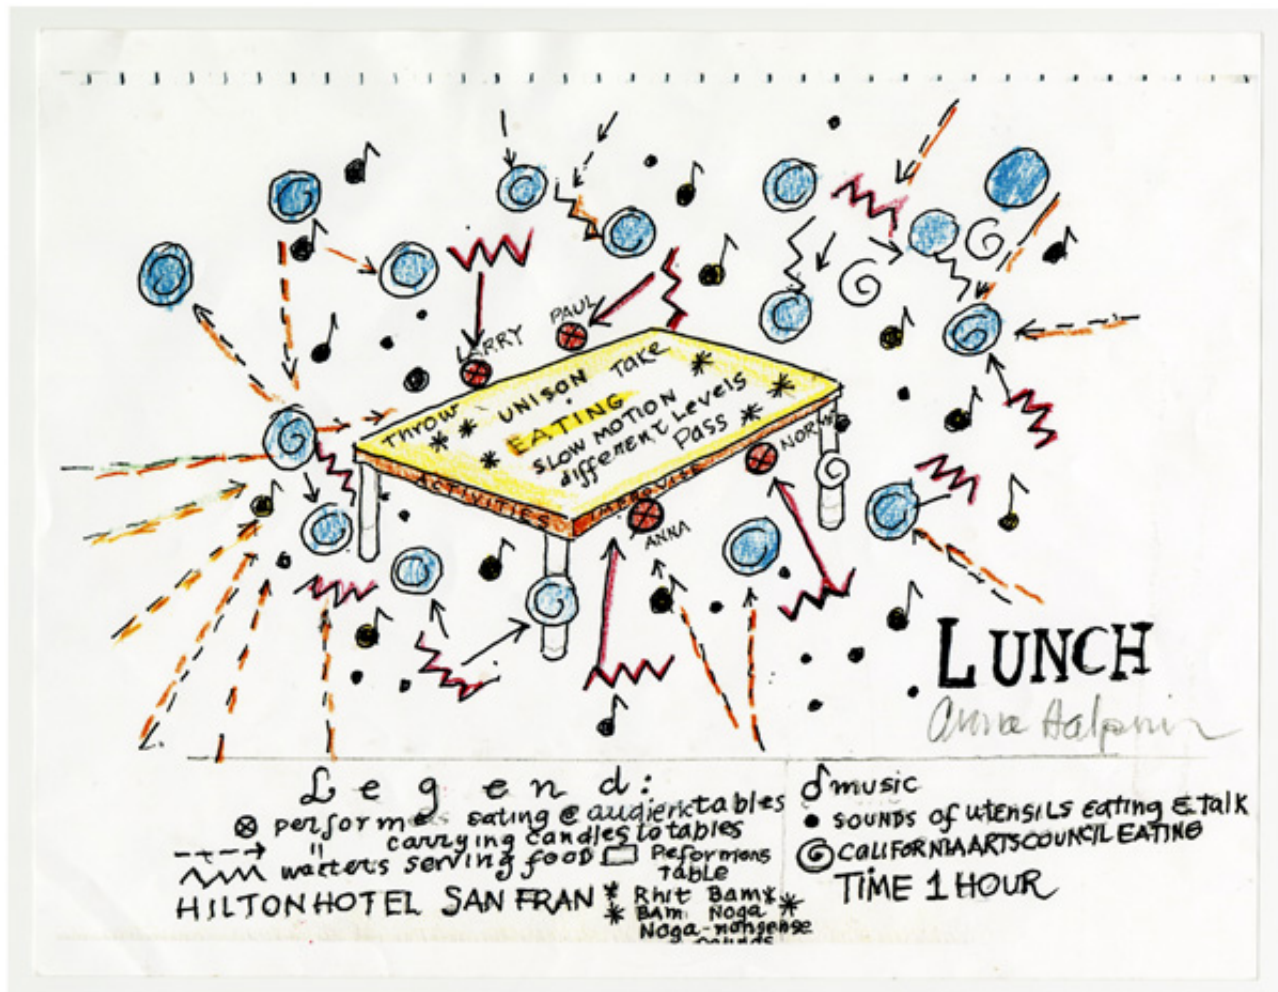 LARRY
PAUL
Throw
UNISON Take
EATING
SLOW MOTION
different Levels
Pass
NORMA
ANNA
ACTIVITIES
IMPROVISE
LUNCH
Anna Halprin
Legend:
performers eating @ audience tables
" carrying candles to tables
waiters serving food
HILTON HOTEL SAN FRAN
Peformens
TABLE
Rhit Bam
BAM Noga
Noga-nongense
Sounds
music
SOUNDS of UTENSILS eating & TALK
CALIFORNIA ARTS COUNCIL EATING
TIME 1 HOUR